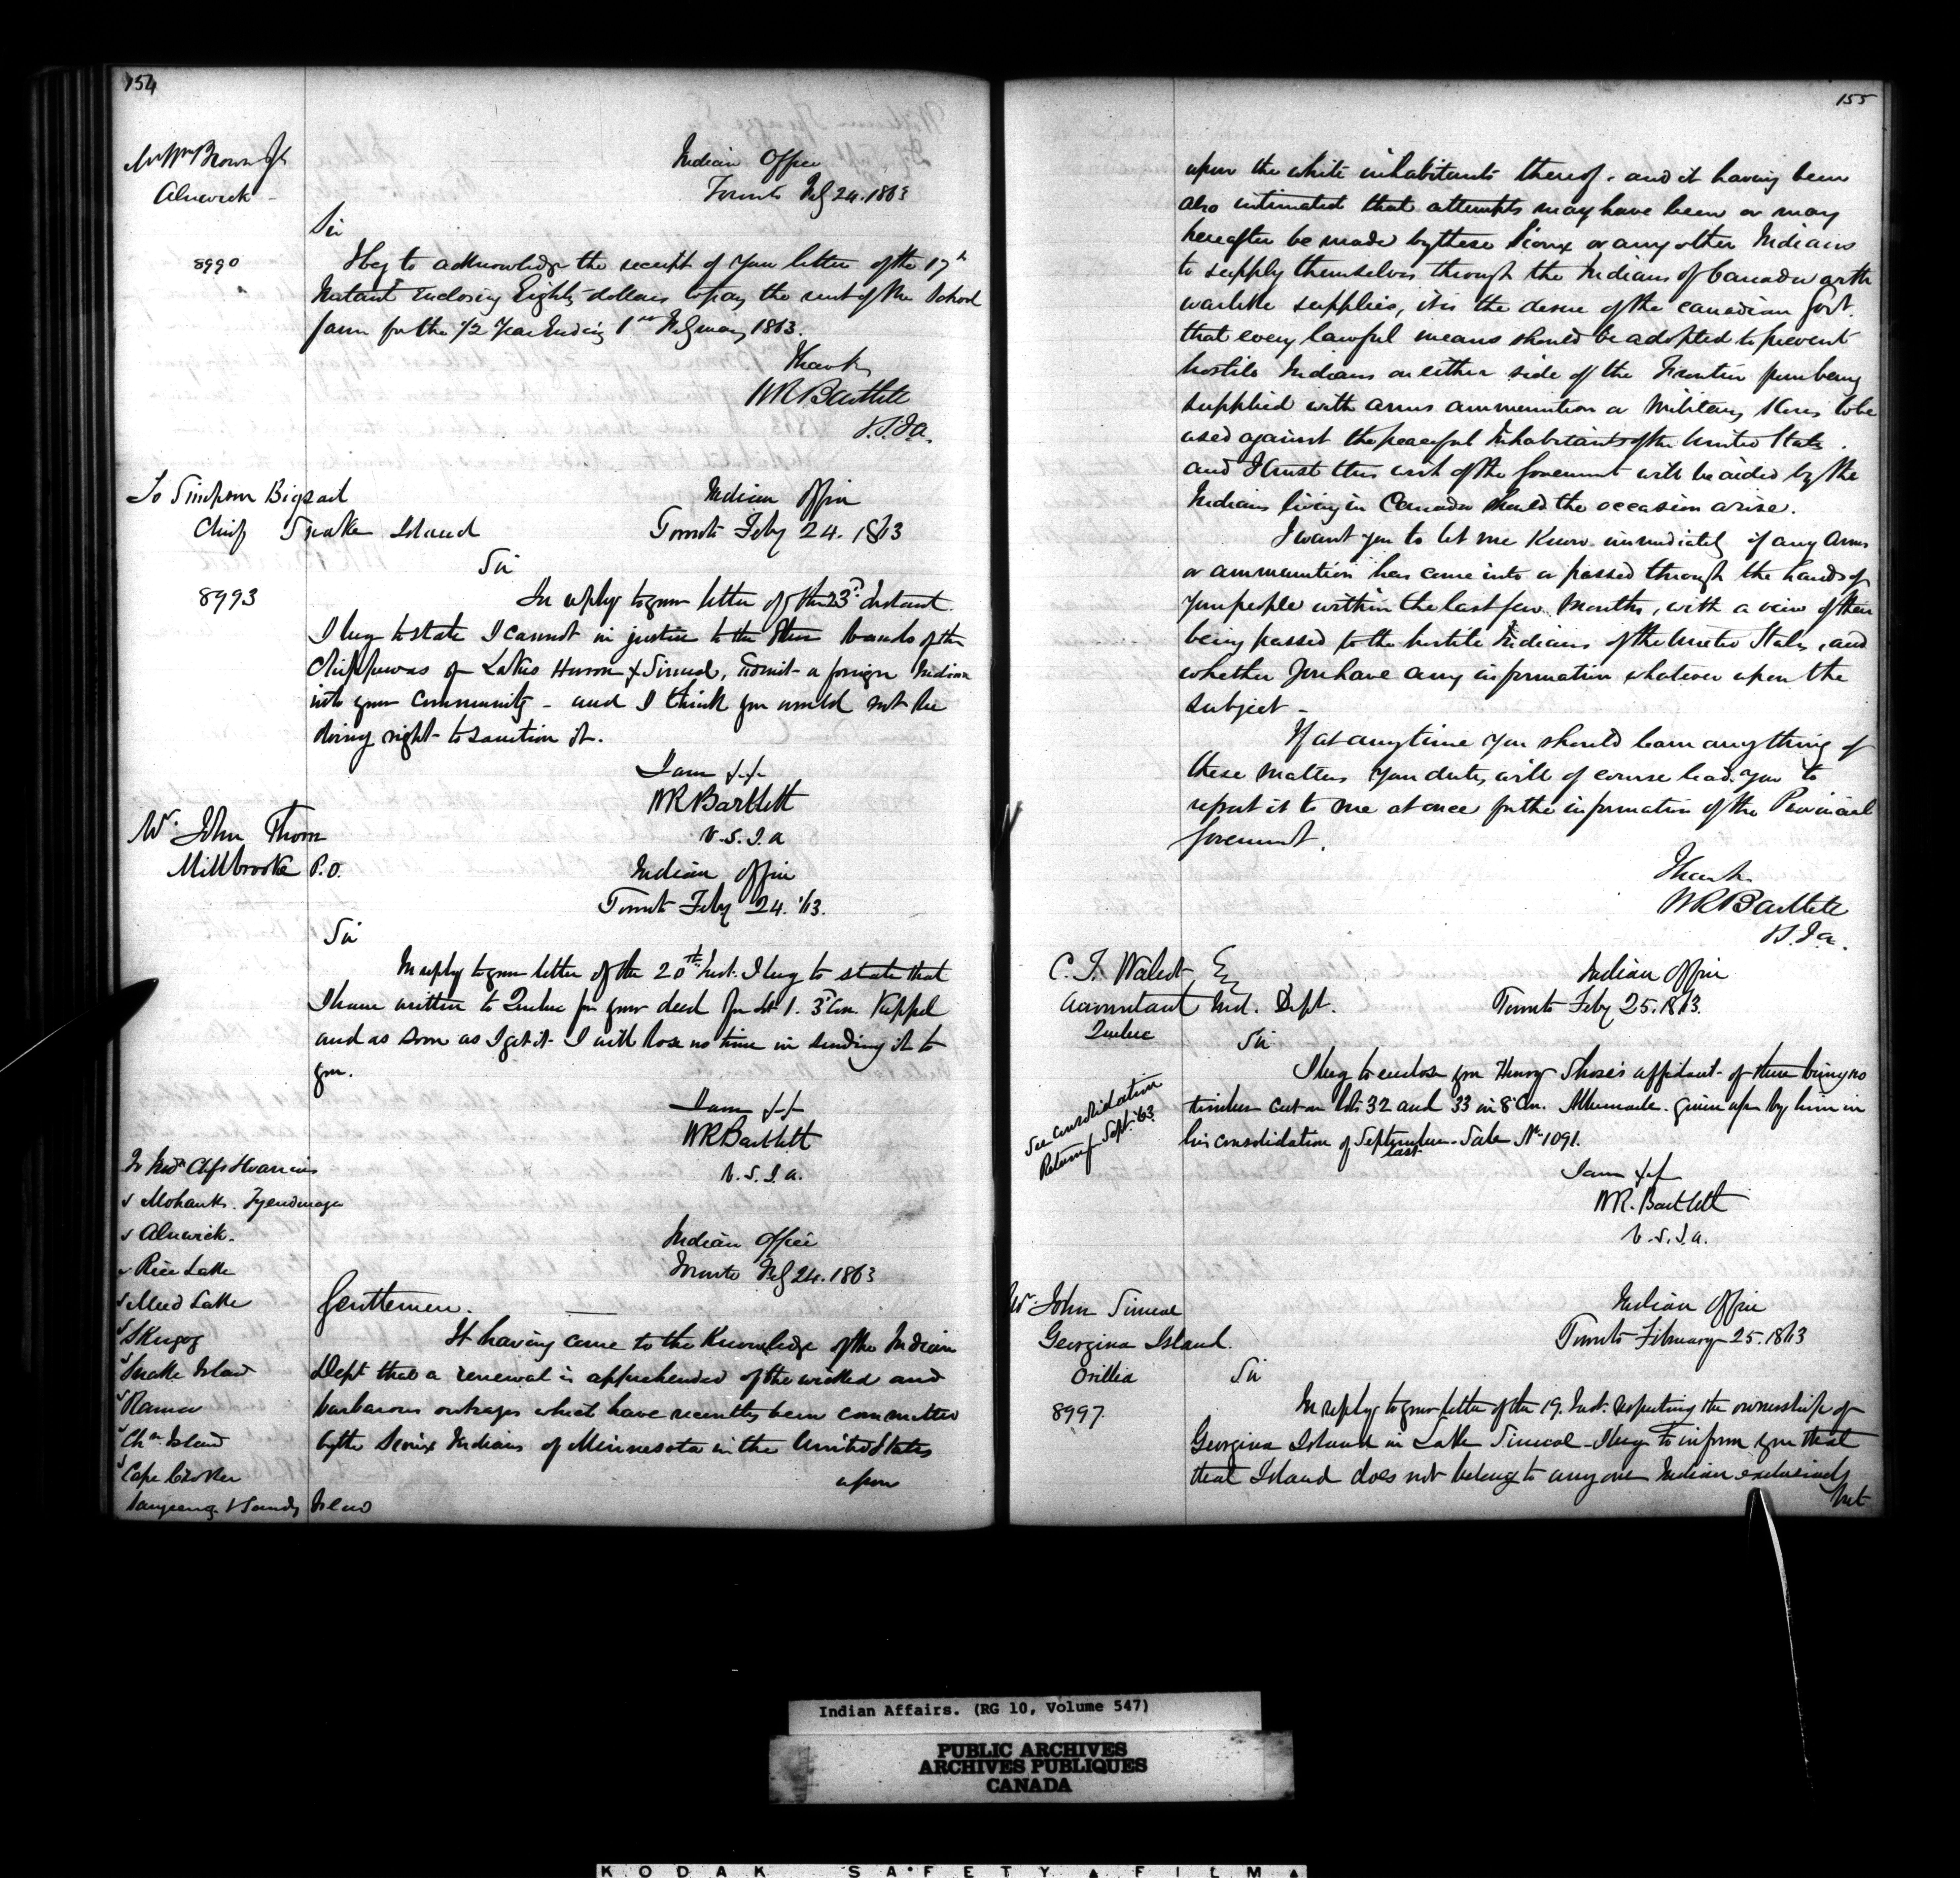 154
Mr Wm Brown Jr
Alnwick
Indian Office
Toronto Feb 24. 1863
Sir
8990
I beg to acknowledge the receipt of your letter of the 17th
Instant Enclosing Eighty dollars to pay the rent of the School
farm for the 1/2 Year Ending 1st February 1863.
I have &c
WR Bartlett
V.S.I.a.
To Simpson Bigsail
Chief Snake Island
Indian Office
Toronto Feby 24. 1863
Sir
8993
In reply to your letter of the 23d instant
I beg to state I cannot in justice to the other bands of the
Chippewas of Lakes Huron & Simcoe, admit a foreign Indian
into your Community - and I think you would not be
doing right to sanction it.
I am &c
WR Bartlett
V.S.I.a
Mr. John Thorn
Millbrooke P.O.
Indian Office
Toronto Feby 24. '63.
Sir
In reply to your letter of the 20th Inst. I beg to state that
I have written to Quebec for your deed for Lot 1. 3d Con. Keppel
and as soon as I get it I will lose no time in sending it to
you.
I am &c
WR Bartlett
V.S.I.a.
To Indn Chfs
Mohawks. Tyendinaga
Alnwick.
Rice Lake
Mud Lake
Skugog
Snake Island
Rama
Chn Island
Cape Croker
Saugeeng & Sandy Island
Indian Office
Toronto Feb 24. 1863
Gentlemen.
It having came to the Knowledge of the Indian
Dept that a renewal is apprehended of the wicked and
barbarous outrages which have recently been committed
by the Sioux Indians of Minnesota in the United States
upon
155
upon the white inhabitants thereof. and it having been
also intimated that attempts may have been or may
hereafter be made by these Sioux or any other Indians
to supply themselves through the Indians of Canada with
warlike supplies, it is the desire of the Canadian Govt.
that every lawful means should be adopted to prevent
hostile Indians on either side of the Frontier from being
supplied with arms ammunition or Military Stores to be
used against the peaceful Inhabitants of the United States.
and I trust this wish of the Goverment will be aided by the
Indians living in Canada should the occasion arise.
I want you to let me Know immediately if any Arms
or ammunition has came into or passed through the hands of
Your people within the last few Months, with a view of their
being passed to the hostile Indians of the United States, and
whether you have any information whatever upon the
subject -
If at anytime you should learn anything of
these matters Your duty will of course lead you to
report it to me at once for the information of the Provincial
Goverment.
I have &c
WR Bartlett
V.S.I.a.
C. T. Walcot Esq
Accountant Ind. Dept.
Quebec
Indian Office
Toronto Feby 25. 1863.
Sir
See Consolidation
Return for Sept. '63
I beg to enclose you Henry Shose's affidavit of there being no
timber cut on lots 32 and 33 in 8 Con. Albemarle. given up by him in
his consolidation of September last Sale No 1091.
I am &c
WR. Bartlett
V.S.I.a.
Mr. John Simcoe
Georgina Island.
Orillia
Indian Office
Toronto February 25. 1863
Sir
8997.
In reply to your letter of the 19. Inst. respecting the ownership of
Georgina Island in Lake Simcoe - I beg to inform you that
that Island does not belong to any one Indian exclusively
but
Indian Affairs. (RG 10, Volume 547)
PUBLIC ARCHIVES
ARCHIVES PUBLIQUES
CANADA
KODAK SAFETY FILM